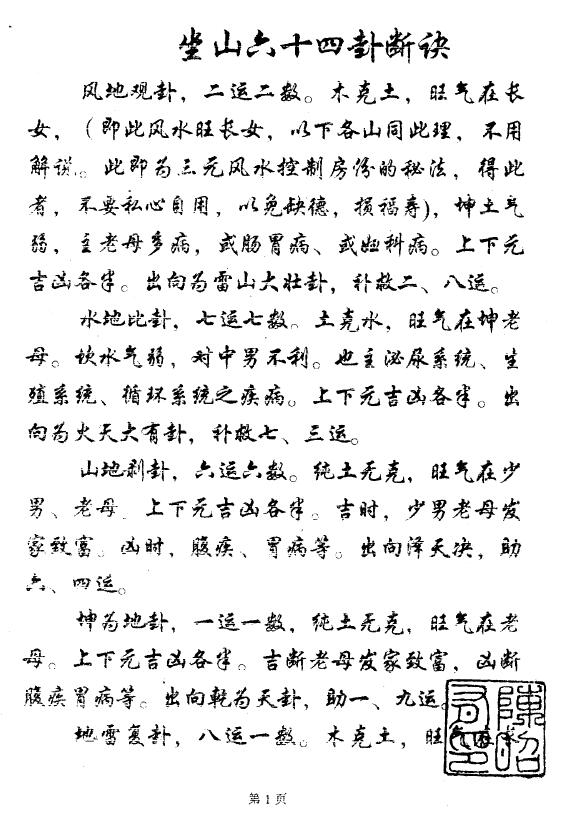 坐山六十四卦断诀
风地观卦，二运二数。木克土，旺气在长
女，（即此风水旺长女，以下各山同此理，不用
解说。此即为三元风水控制房份的秘法，得此
者，不要私心自用，以免缺德，损福寿），坤土气
弱，主老母多病，或肠胃病、或妇科病。上下元
吉凶各半。出向为雷山大壮卦，补救二、八运。
水地比卦，七运七数。土克水，旺气在坤老
母。坎水气弱，对中男不利。也主泌尿系统、生
殖系统、循环系统之疾病。上下元吉凶各半。出
向为火天大有卦，补救七、三运。
山地剥卦，六运六数。纯土无克，旺气在少
男、老母。上下元吉凶各半。吉时，少男老母发
家致富。凶时，腹疾、胃病等。出向泽天决，助
六、四运。
坤为地卦，一运一数，纯土无克，旺气在老
母。上下元吉凶各半。吉断老母发家致富，凶断
腹疾胃病等。出向乾为天卦，助一、九运。
地雷复卦，八运一数。木克土，旺气在
第1页